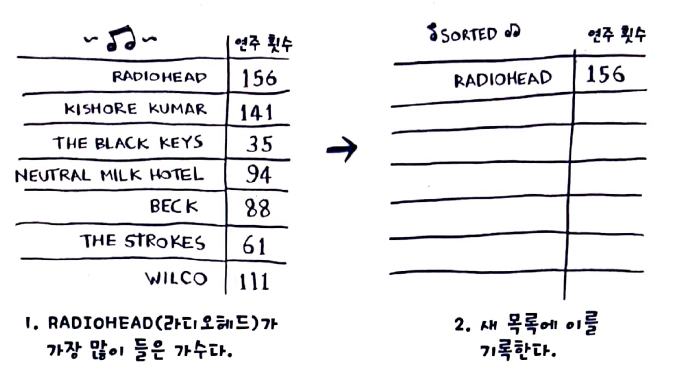 연주 횟수
RADIOHEAD 156
KISHORE KUMAR 141
THE BLACK KEYS 35
NEUTRAL MILK HOTEL 94
BECK 88
THE STROKES 61
WILCO 111
1. RADIOHEAD(라디오헤드)가
가장 많이 들은 가수다.
SORTED 연주 횟수
RADIOHEAD 156
2. 새 목록에 이를
기록한다.